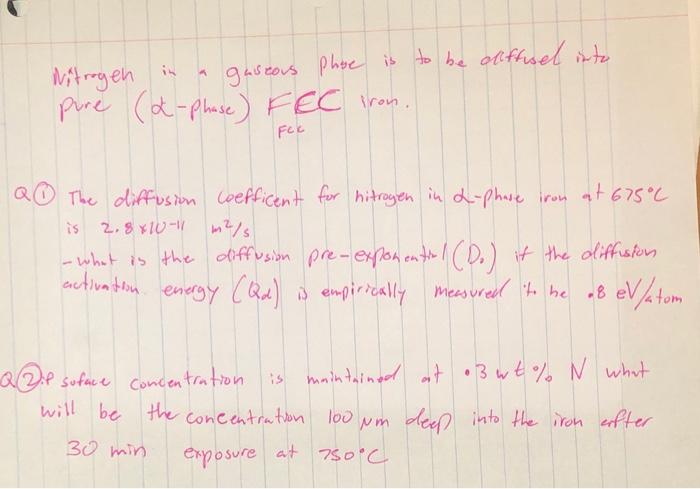 Nitrogen in a gaseous phase is to be diffused into
pure (α-phase) FCC iron.
FCC
Q① The diffusion coefficent for nitrogen in α-phase iron at 675°C
is 2.8x10-11 m²/s
- what is the diffusion pre-exponential (D₀) if the diffusion
activation energy (Qd) is empirically measured to be .8 eV/atom
Q② if surface concentration is maintained at .3 wt% N what
will be the concentration 100 μm deep into the iron after
30 min exposure at 750°C